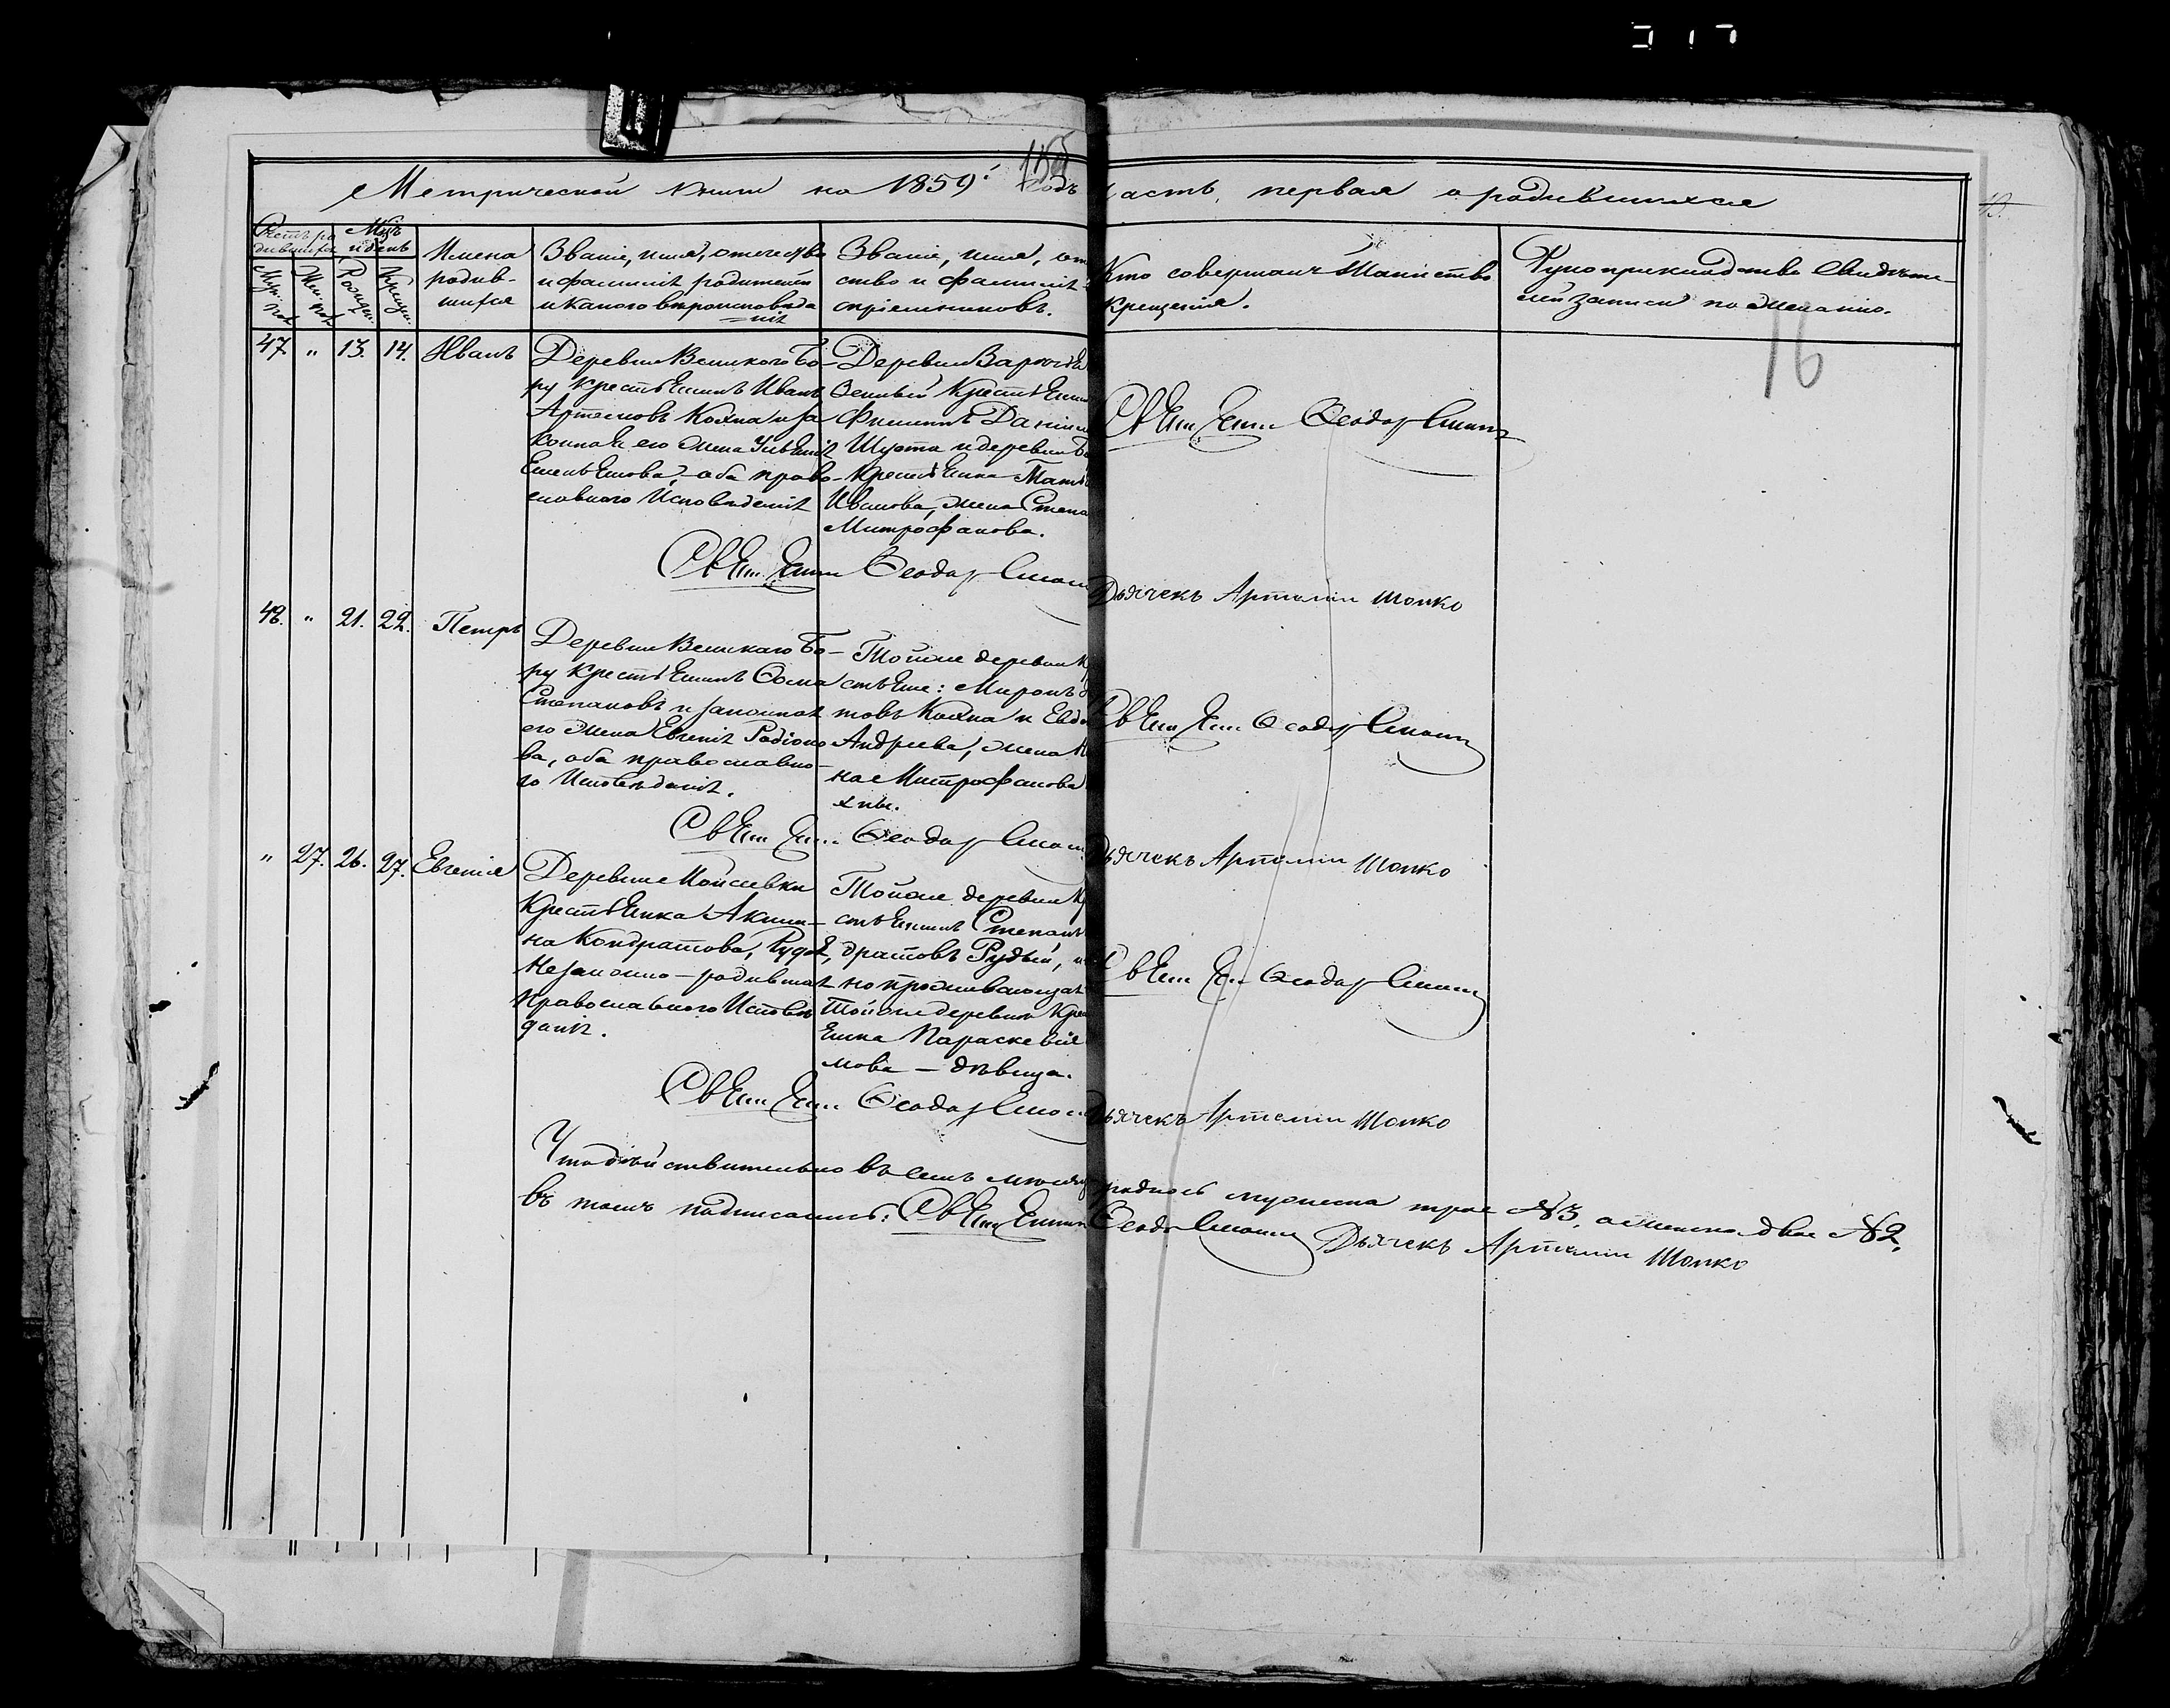 Метрической книги на 1859й Годъ
часть первая о родившихся
Счетъ ро
дившихся
Муж. пол.
Жен. пол.
Мцъ
и день
Рожден.
Крещен.
Имена
родив-
шихся
Званіе, имя, отчество
и фамилія родителей
и какого вѣроисповѣда
нія
Званіе, имя, от
ство и фамилія
воспріемниковъ.
Кто совершалъ Таинство
крещенія.
Рукоприкладство свидѣте-
лей записи по желанію.
16
47 " 13. 14. Иванъ
Деревни Великого Бо-
ру крестьянинъ Иванъ
Артемовъ Кохна и за
конная его жена
Емельянова, оба право-
славного Исповѣданія
Деревни
крестьянин
Филиппъ Данил
Шуста и деревни
крестьянка
Иванова, жена Степа
Митрофанова.
Священникъ Ѳеодоръ
Священникъ Ѳеодоръ
Дьячекъ Артемій Шопко
48. " 21. 22. Петръ
Деревни Великаго Бо-
ру крестьянинъ Ѳома
Степановъ и законная
его жена Евгенія Родіоно
ва, оба православно-
го Исповѣданія.
Той же деревни кр
стьяне: Миронъ
товъ Кохна и Евдо
Андреева, жена
на Митрофанова
хны.
Священникъ Ѳеодоръ
Священникъ Ѳеодоръ
Дьячекъ Артемій Шопко
" 27. 26. 27. Евгенія
Деревни Моисеевки
Крестьянка Акили-
на Кондратова, Рудая,
незаконно-родившая
Православного Исповѣ
данія.
Той же деревни кр
стьянинъ Степанъ
дратовъ Рудый, и
но проживающая
той же деревни кре
янка Параскевія
мова — дѣвица.
Священникъ Ѳеодоръ
Священникъ Ѳеодоръ
Дьячекъ Артемій Шопко
Что дѣйствительно въ семъ мѣсяцѣ родилось мужеска трое №3, а женска двое №2,
въ томъ подписались: Священникъ Ѳеодоръ Дьячекъ Артемій Шопко